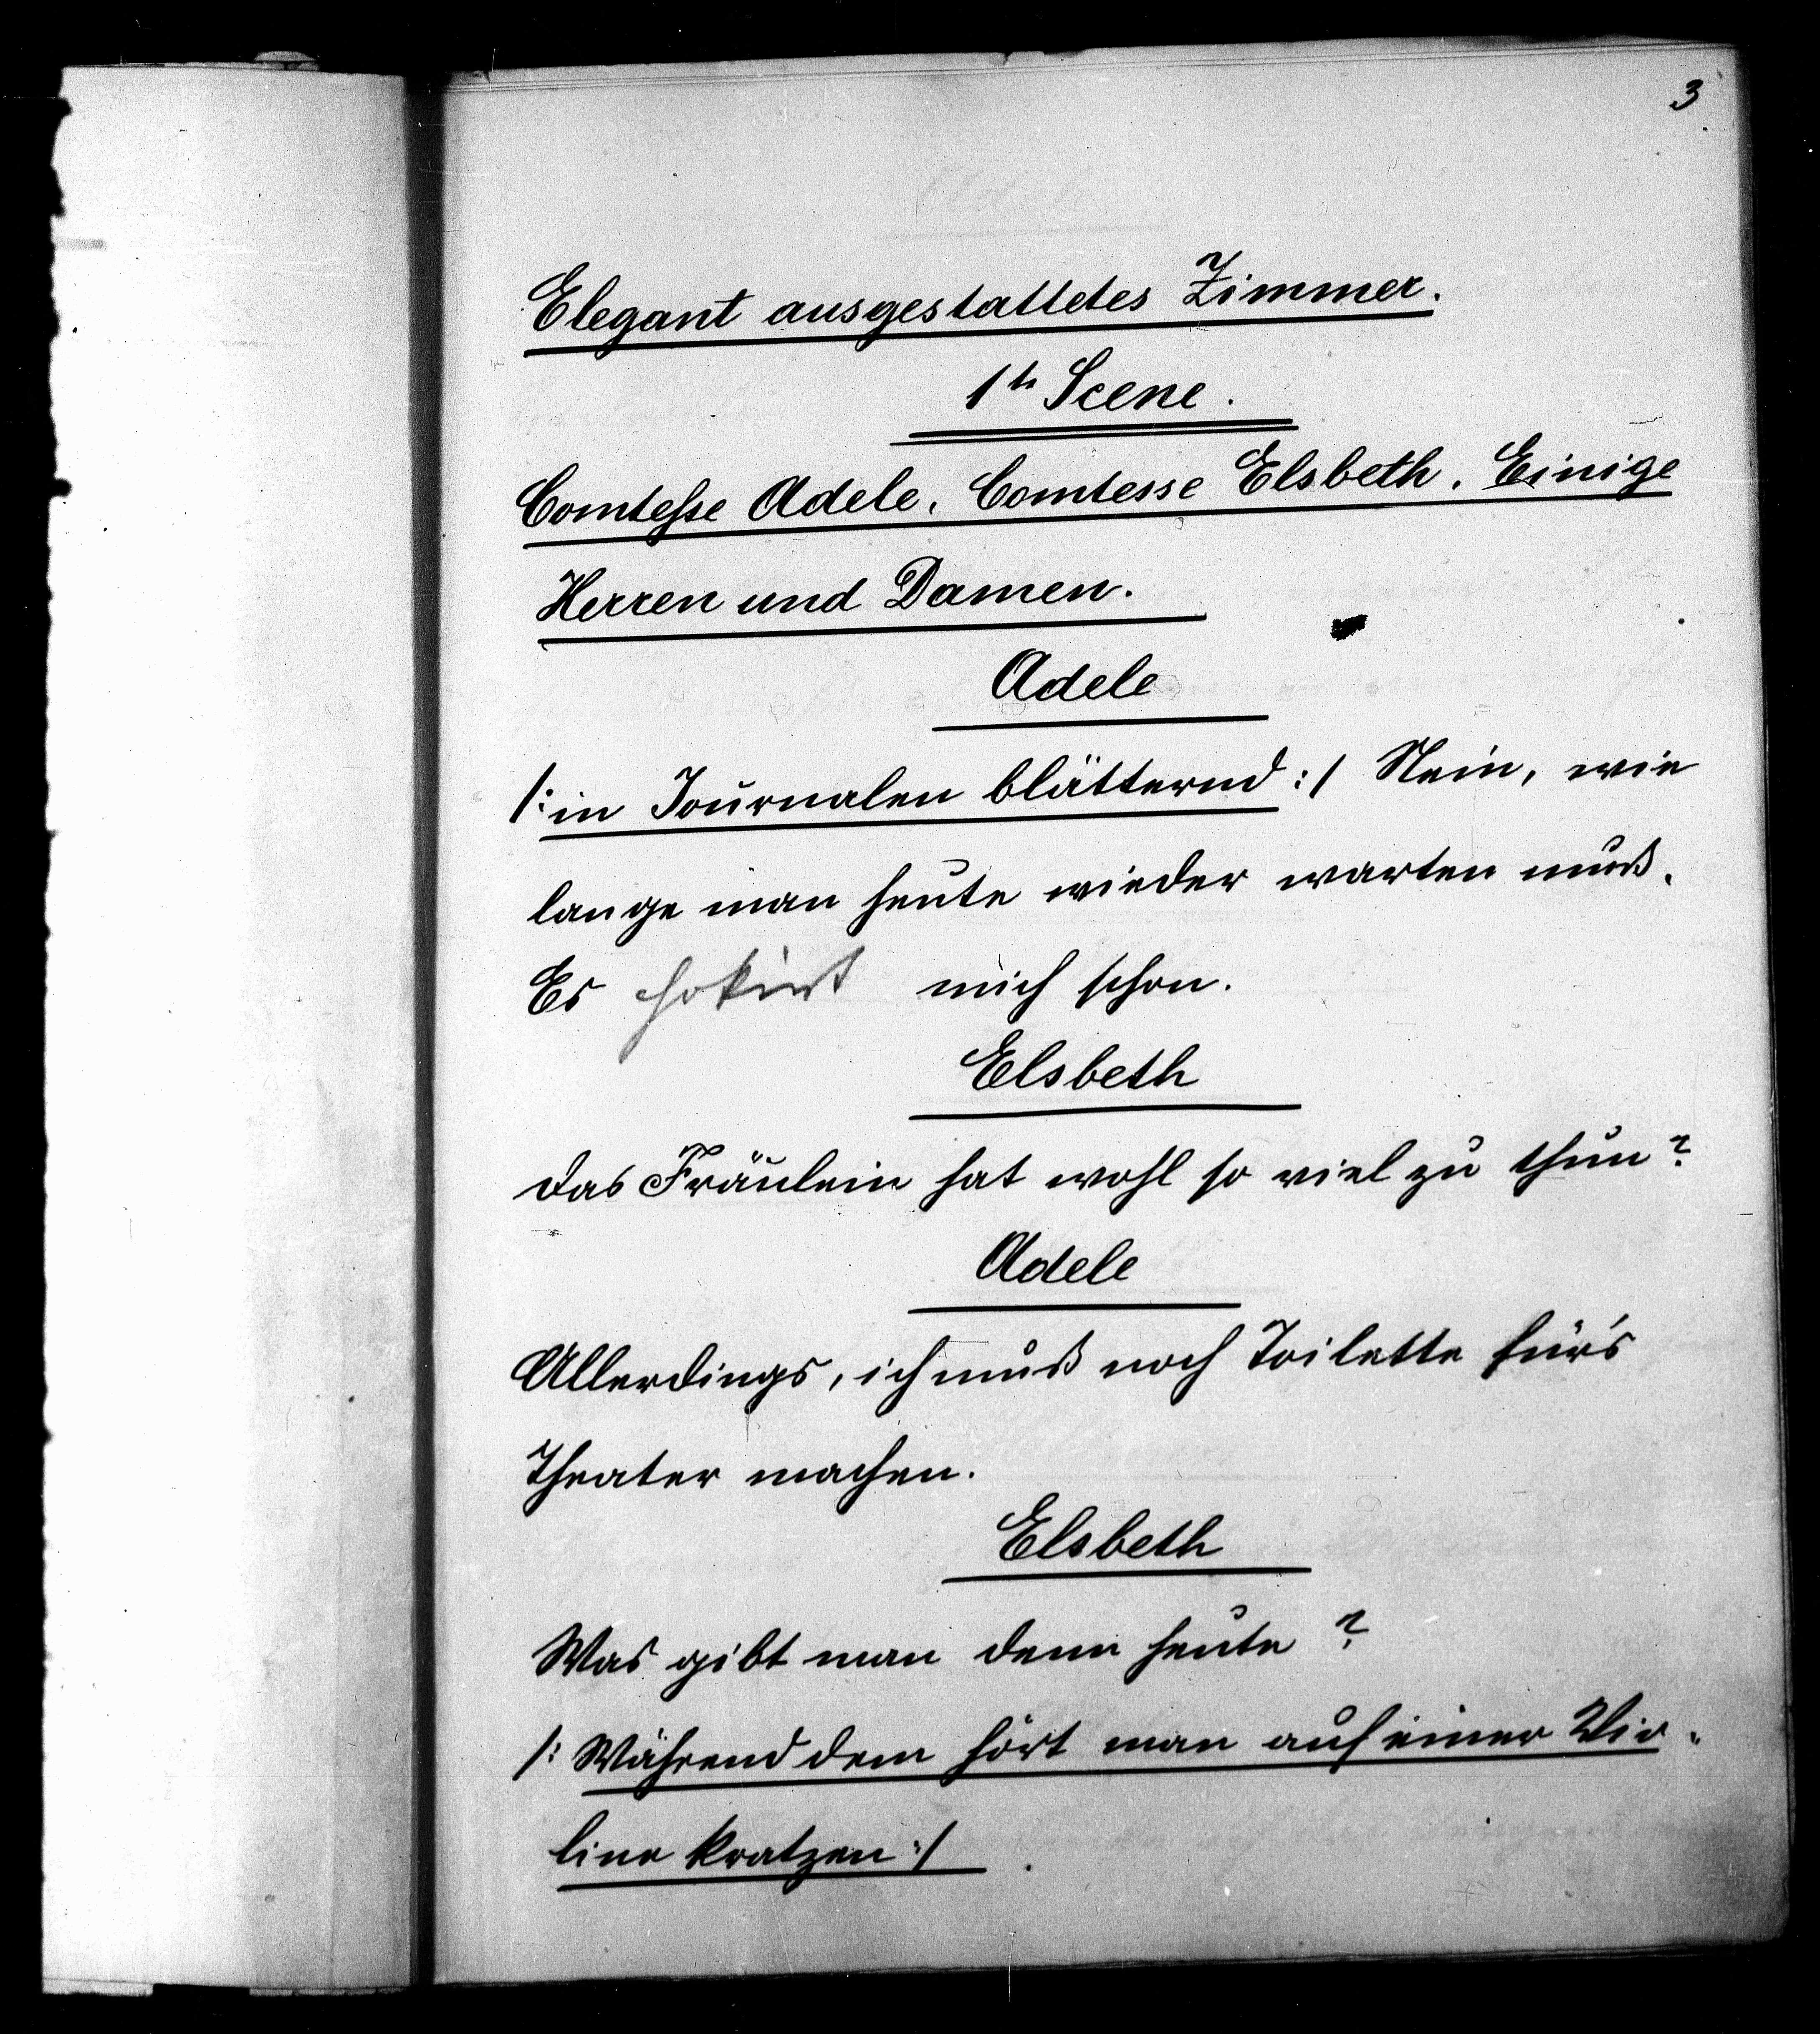 3
Elegant ausgestattetes Zimmer.
1te Scene.
Comtesse Adele. Comtesse Elsbeth. Einige
Herren und Damen.
Adele
/: in Journalen blätternd :/ Nein, wie
lange man heute wieder warten muß.
Es chokirt mich schon.
Elsbeth
Das Fräulein hat wohl so viel zu thun?
Adele
Allerdings, ich muß noch Toilette für's
Theater machen.
Elsbeth
Was gibt man denn heute?
/: Während dem hört man auf einer Vio-
line kratzen :/